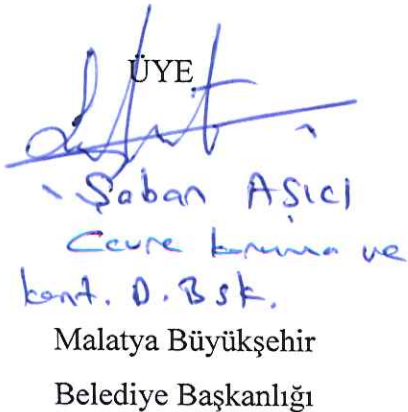 ÜYE
Şaban AŞICI
Çevre koruma ve
kont. D. Bşk.
Malatya Büyükşehir
Belediye Başkanlığı